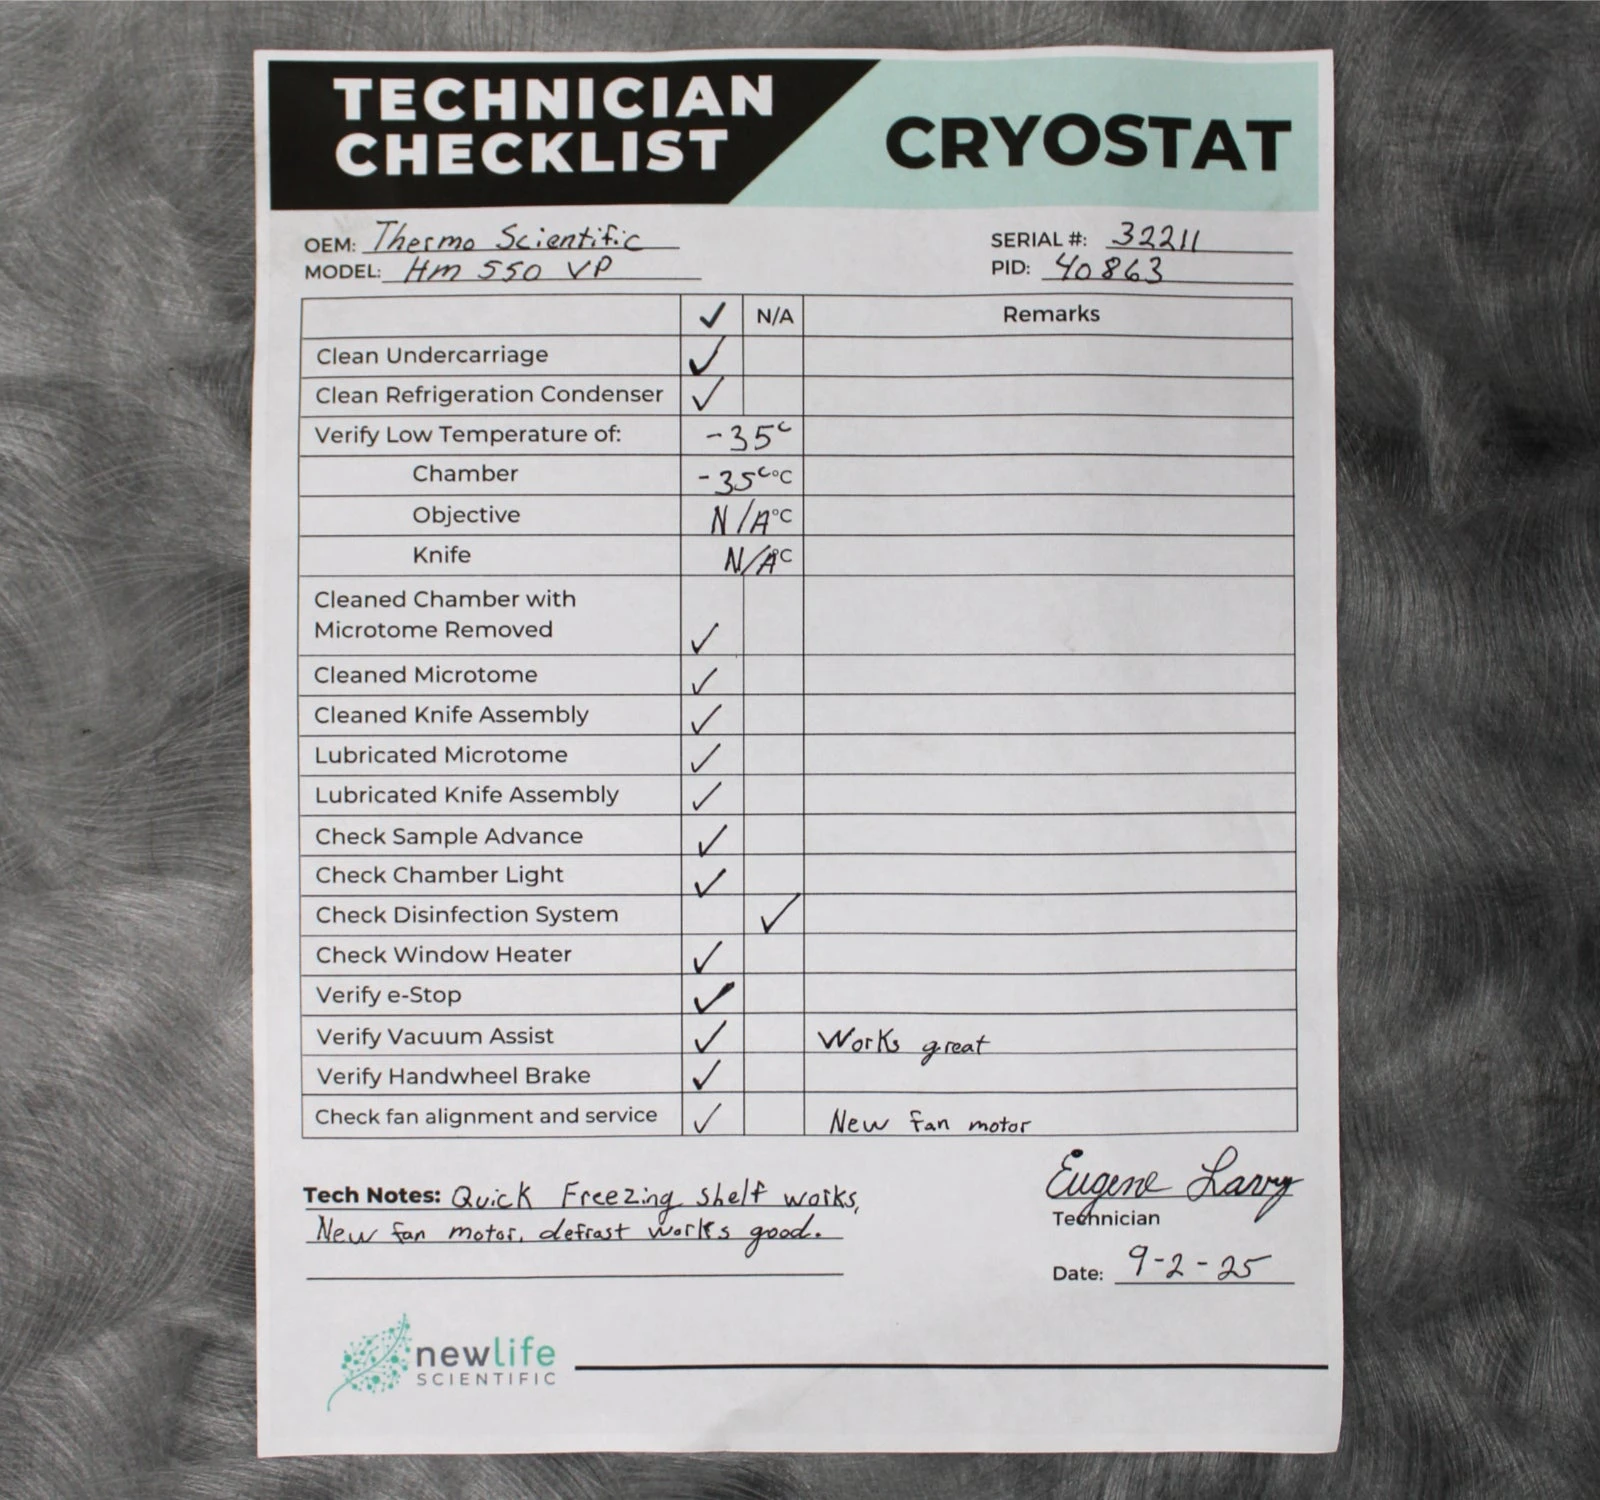 TECHNICIAN
CHECKLIST
CRYOSTAT
OEM: Thermo Scientific
SERIAL #: 32211
MODEL: Hm 550 VP
PID: 40863
✓ N/A Remarks
Clean Undercarriage ✓
Clean Refrigeration Condenser ✓
Verify Low Temperature of: -35ᶜ
Chamber -35ᶜ°C
Objective N/A°C
Knife N/A°C
Cleaned Chamber with
Microtome Removed ✓
Cleaned Microtome ✓
Cleaned Knife Assembly ✓
Lubricated Microtome ✓
Lubricated Knife Assembly ✓
Check Sample Advance ✓
Check Chamber Light ✓
Check Disinfection System ✓
Check Window Heater ✓
Verify e-Stop ✓
Verify Vacuum Assist ✓ Works great
Verify Handwheel Brake ✓
Check fan alignment and service ✓ New fan motor
Tech Notes: Quick Freezing shelf works,
New fan motor, defrast works good.
Eugene Larry
Technician
Date: 9-2-25
newlife
SCIENTIFIC